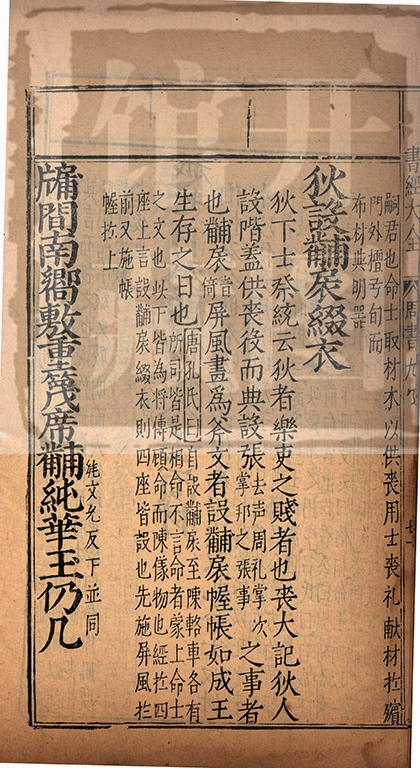 嗣君也命士取材木以供喪用士喪礼献材于殯
門外檀弓旬而
布材與明器
狄設黼扆綴衣
狄下士祭統云狄者樂吏之賤者也喪大記狄人
設階盖供喪役而典設張去声周礼掌次掌邦之張事之事者
也黼扆音倚屏風畫為斧文者設黼扆幄帳如成王
生存之日也唐孔氏曰自設黼扆至陳輅車各有所司皆是相命不言命者蒙上命士
之文也以下皆為将傳顧命而陳儀物也經于四
座上言設黼扆綴衣則四座皆設也先施屏風于
前又施帳
幄于上
牖間南嚮敷重蔑席黼純華玉仍几
純文允反下並同
書經大全
周書